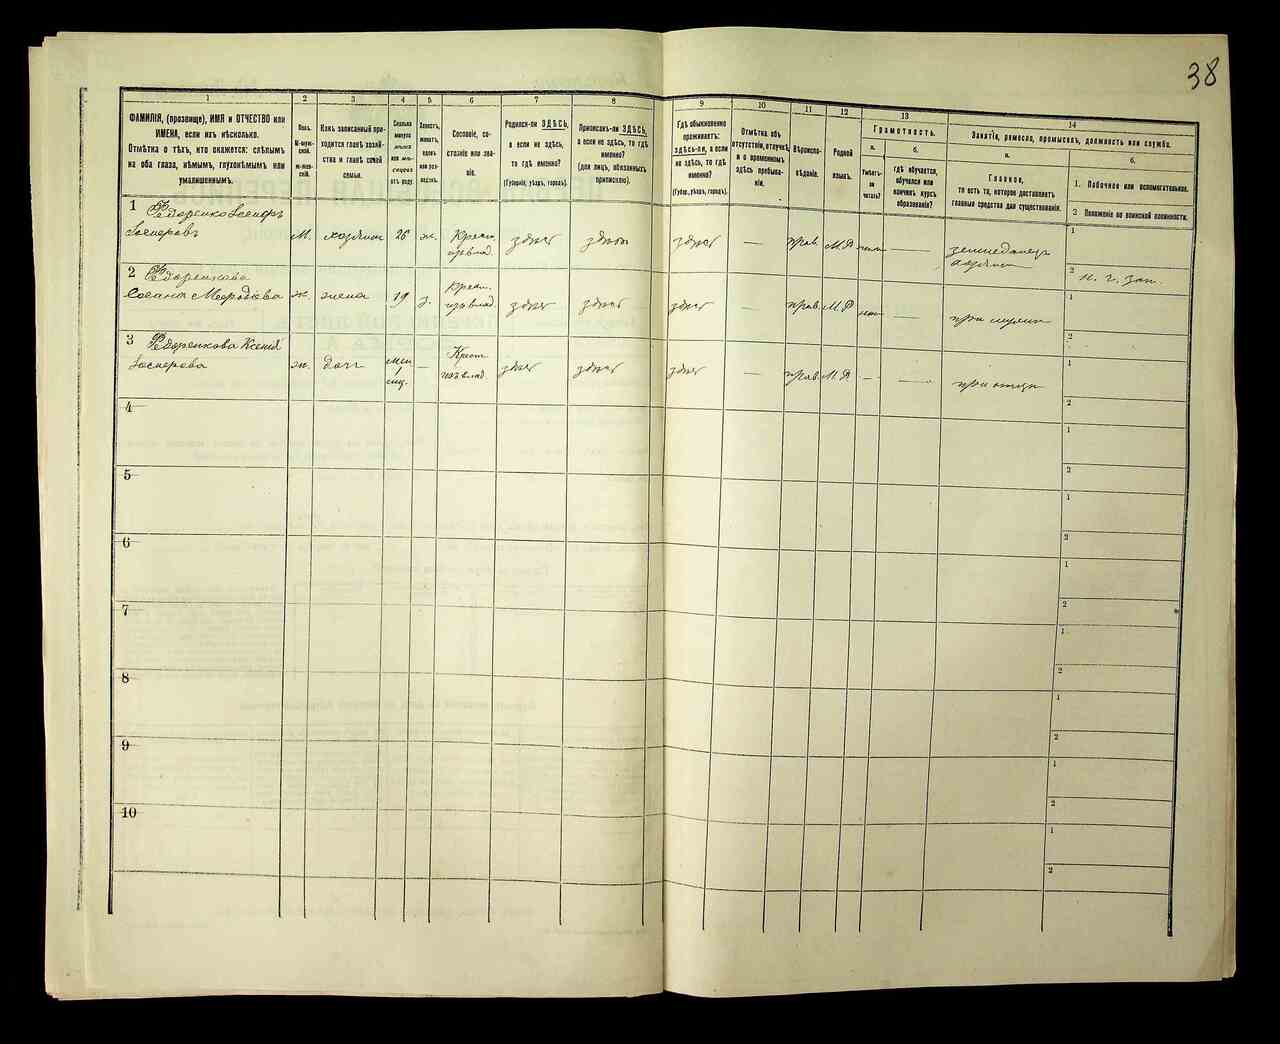 38
1
2
3
4
5
6
7
8
9
10
11
12
13
14
ФАМИЛІЯ, (прозвище), ИМЯ и ОТЧЕСТВО или
ИМЕНА, если ихъ нѣсколько.
Отмѣтка о тѣхъ, кто окажется: слѣпымъ
на оба глаза, нѣмымъ, глухонѣмымъ или
умалишеннымъ.
Полъ.
М-мужской.
Ж-женскій.
Какъ записанный приходится
главѣ хозяйства
и главѣ своей
семьи.
Сколько
минуло
лѣтъ
или мѣсяцевъ
отъ роду.
Холостъ,
женатъ,
вдовъ
или разведенъ.
Сословіе, состояніе
или званіе.
Родился-ли ЗДѢСЬ,
а если не здѣсь,
то гдѣ именно?
(Губернія, уѣздъ, городъ).
Приписанъ-ли ЗДѢСЬ,
а если не здѣсь, то гдѣ
именно?
(для лицъ, обязанныхъ
припискою).
Гдѣ обыкновенно
проживаетъ:
здѣсь-ли, а если
не здѣсь, то гдѣ
именно?
(Губер., уѣздъ, городъ).
Отмѣтка объ
отсутствіи, отлучкѣ
и о временномъ
здѣсь пребываніи.
Вѣроисповѣданіе.
Родной
языкъ.
Грамотность.
а.
Умѣетъ-ли
читать?
б.
гдѣ обучается,
обучался или
кончилъ курсъ
образованія?
Занятіе, ремесло, промыселъ, должность или служба.
а.
Главное,
то есть то, которое доставляетъ
главныя средства для существованія.
б.
1. Побочное или вспомогательное.
2 Положеніе по воинской повинности.
1 Федоренко
М. хозяинъ 26 ж. Крест. здѣсь здѣсь здѣсь — прав. М.Р. нѣтъ — земледѣлецъ
хозяинъ
1
2
2 Федоренкова
ж. жена 19 з. Крест. здѣсь здѣсь здѣсь — прав. М.Р. нѣтъ — при мужѣ
1
2
3 Федоренкова Ксенія
ж. дочь 1 — Крест. здѣсь здѣсь здѣсь — прав. М.Р. — — при отцѣ
1
2
4
1
2
5
1
2
6
1
2
7
1
2
8
1
2
9
1
2
10
1
2